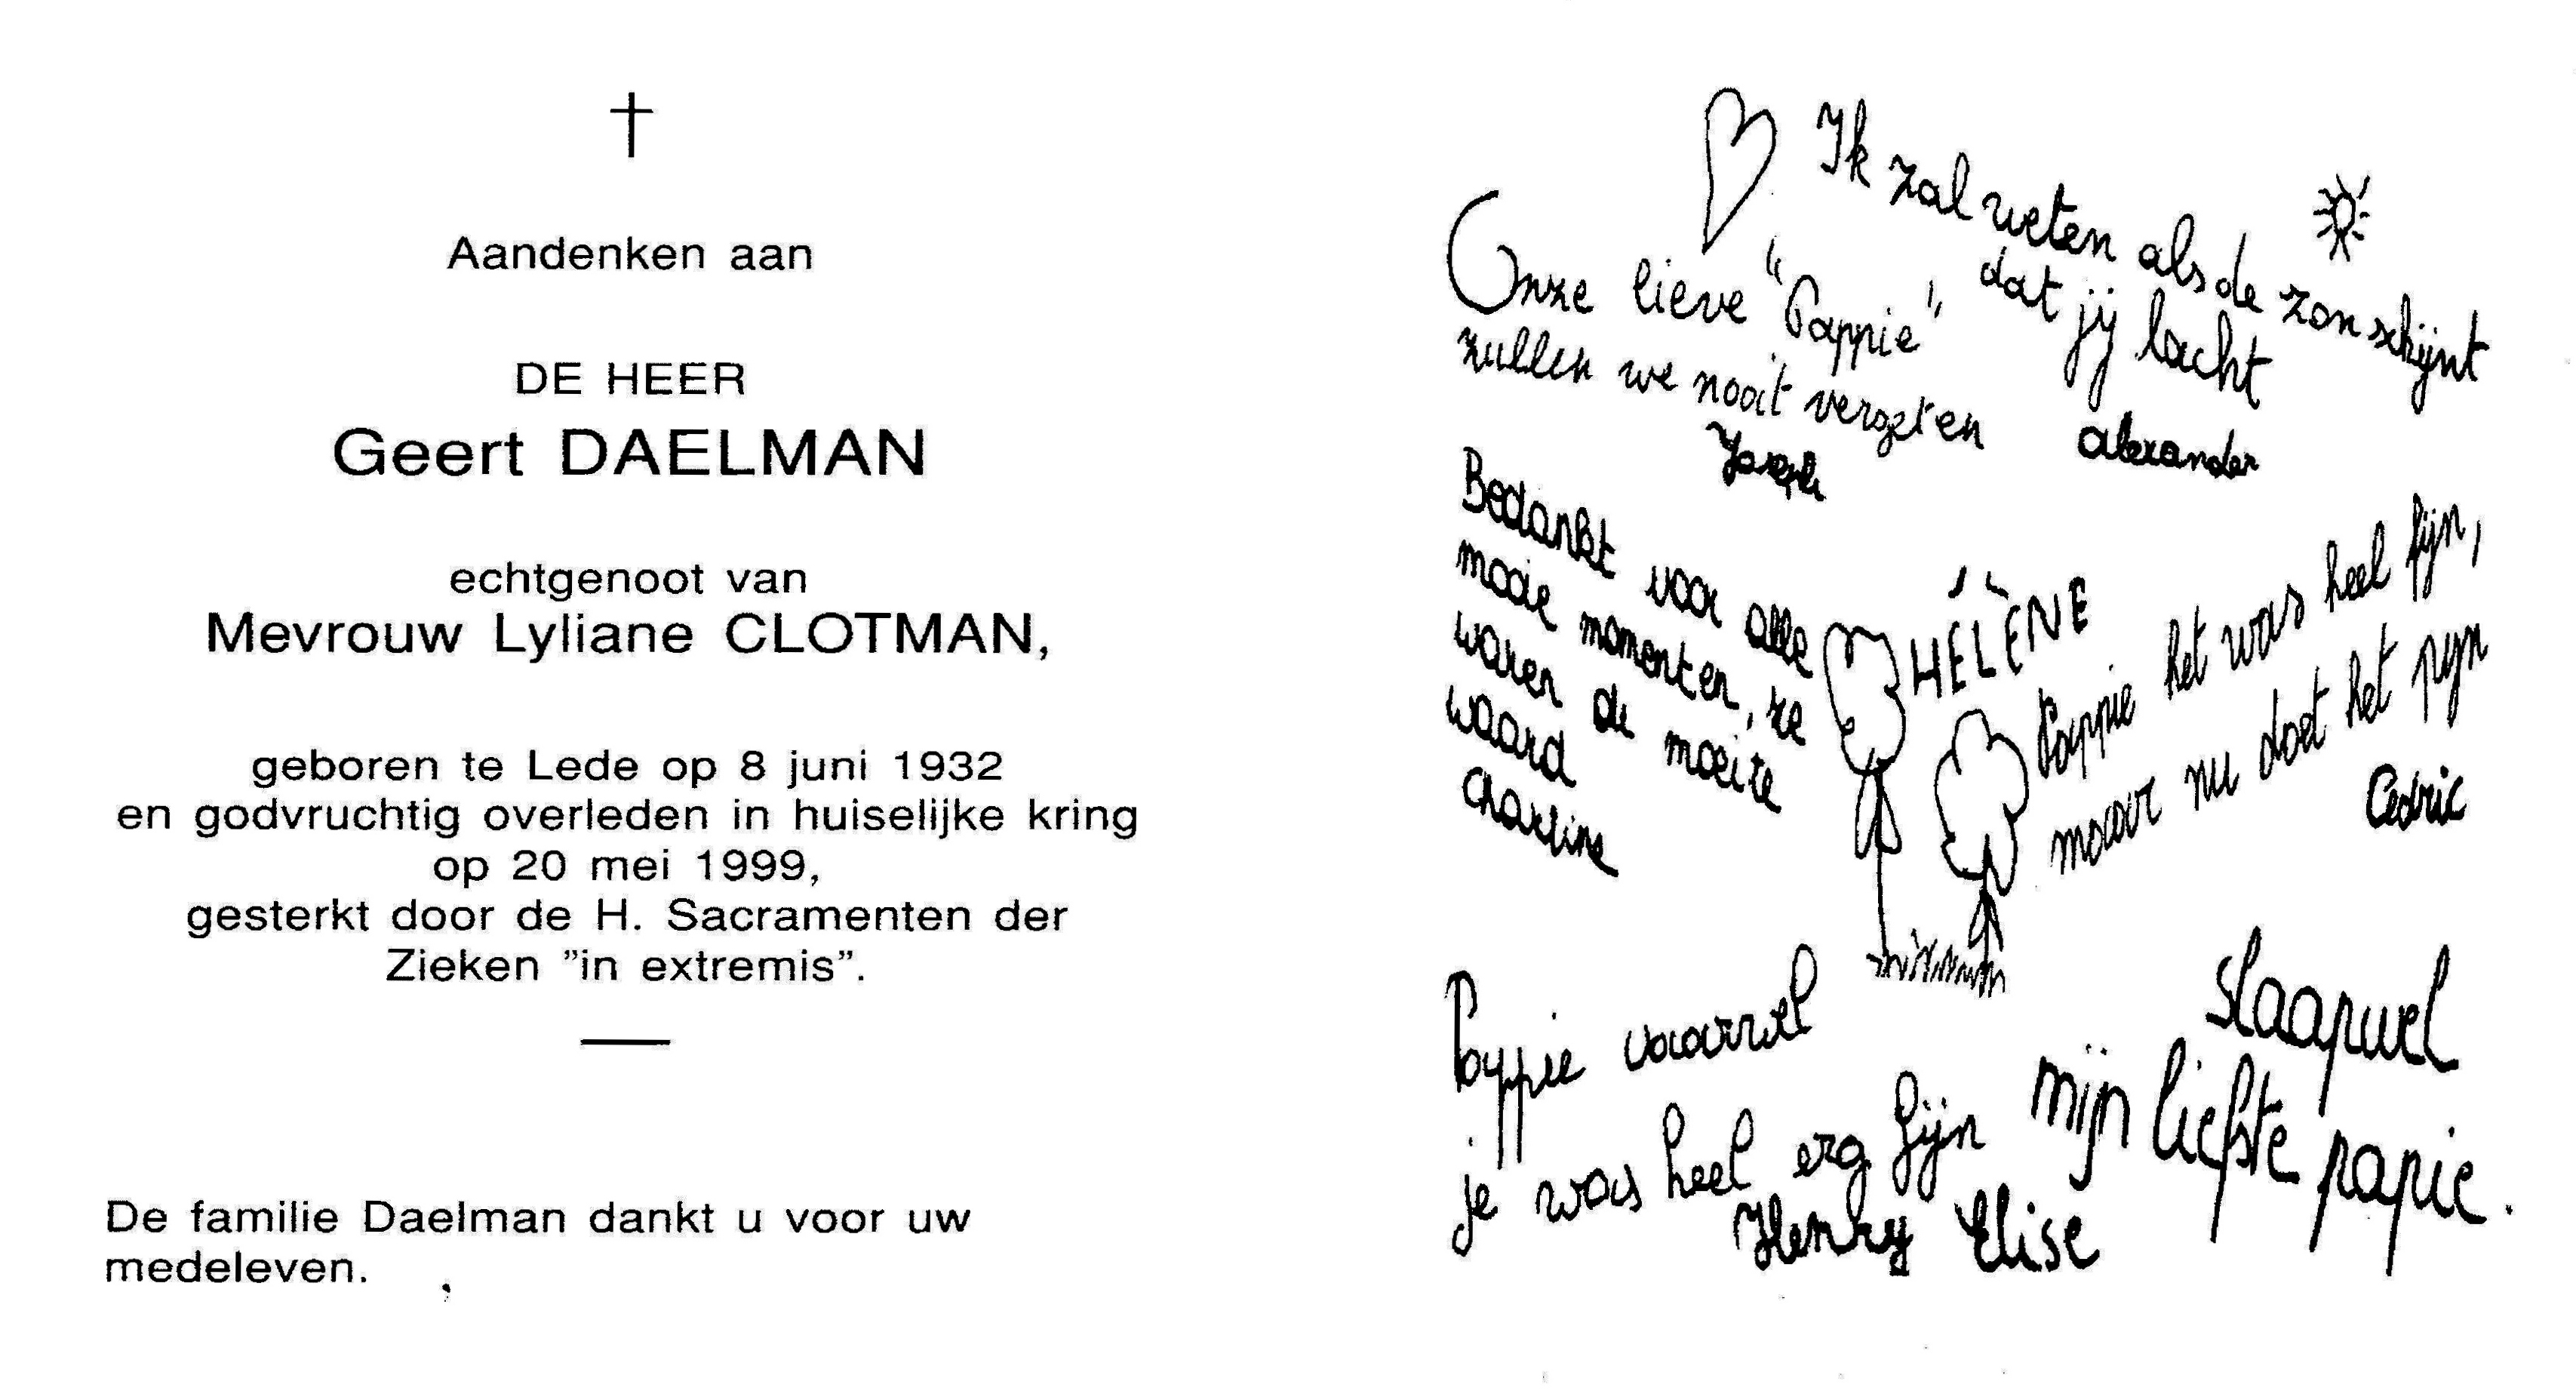 Aandenken aan
DE HEER
Geert DAELMAN
echtgenoot van
Mevrouw Lyliane CLOTMAN,
geboren te Lede op 8 juni 1932
en godvruchtig overleden in huiselijke kring
op 20 mei 1999,
gesterkt door de H. Sacramenten der
Zieken "in extremis".
De familie Daelman dankt u voor uw
medeleven.
Ik zal weten als de zon schijnt
dat jij lacht
Alexander
Onze lieve "Pappie"
zullen we nooit vergeten
Joseph
Bedankt voor alle
mooie momenten, ze
waren de moeite
waard
Charline
HÉLÈNE
Pappie het was heel fijn,
maar nu doet het pijn
Cedric
Pappie vaarwel
je was heel erg fijn
Henry
Slaapwel
mijn liefste papie.
Elise